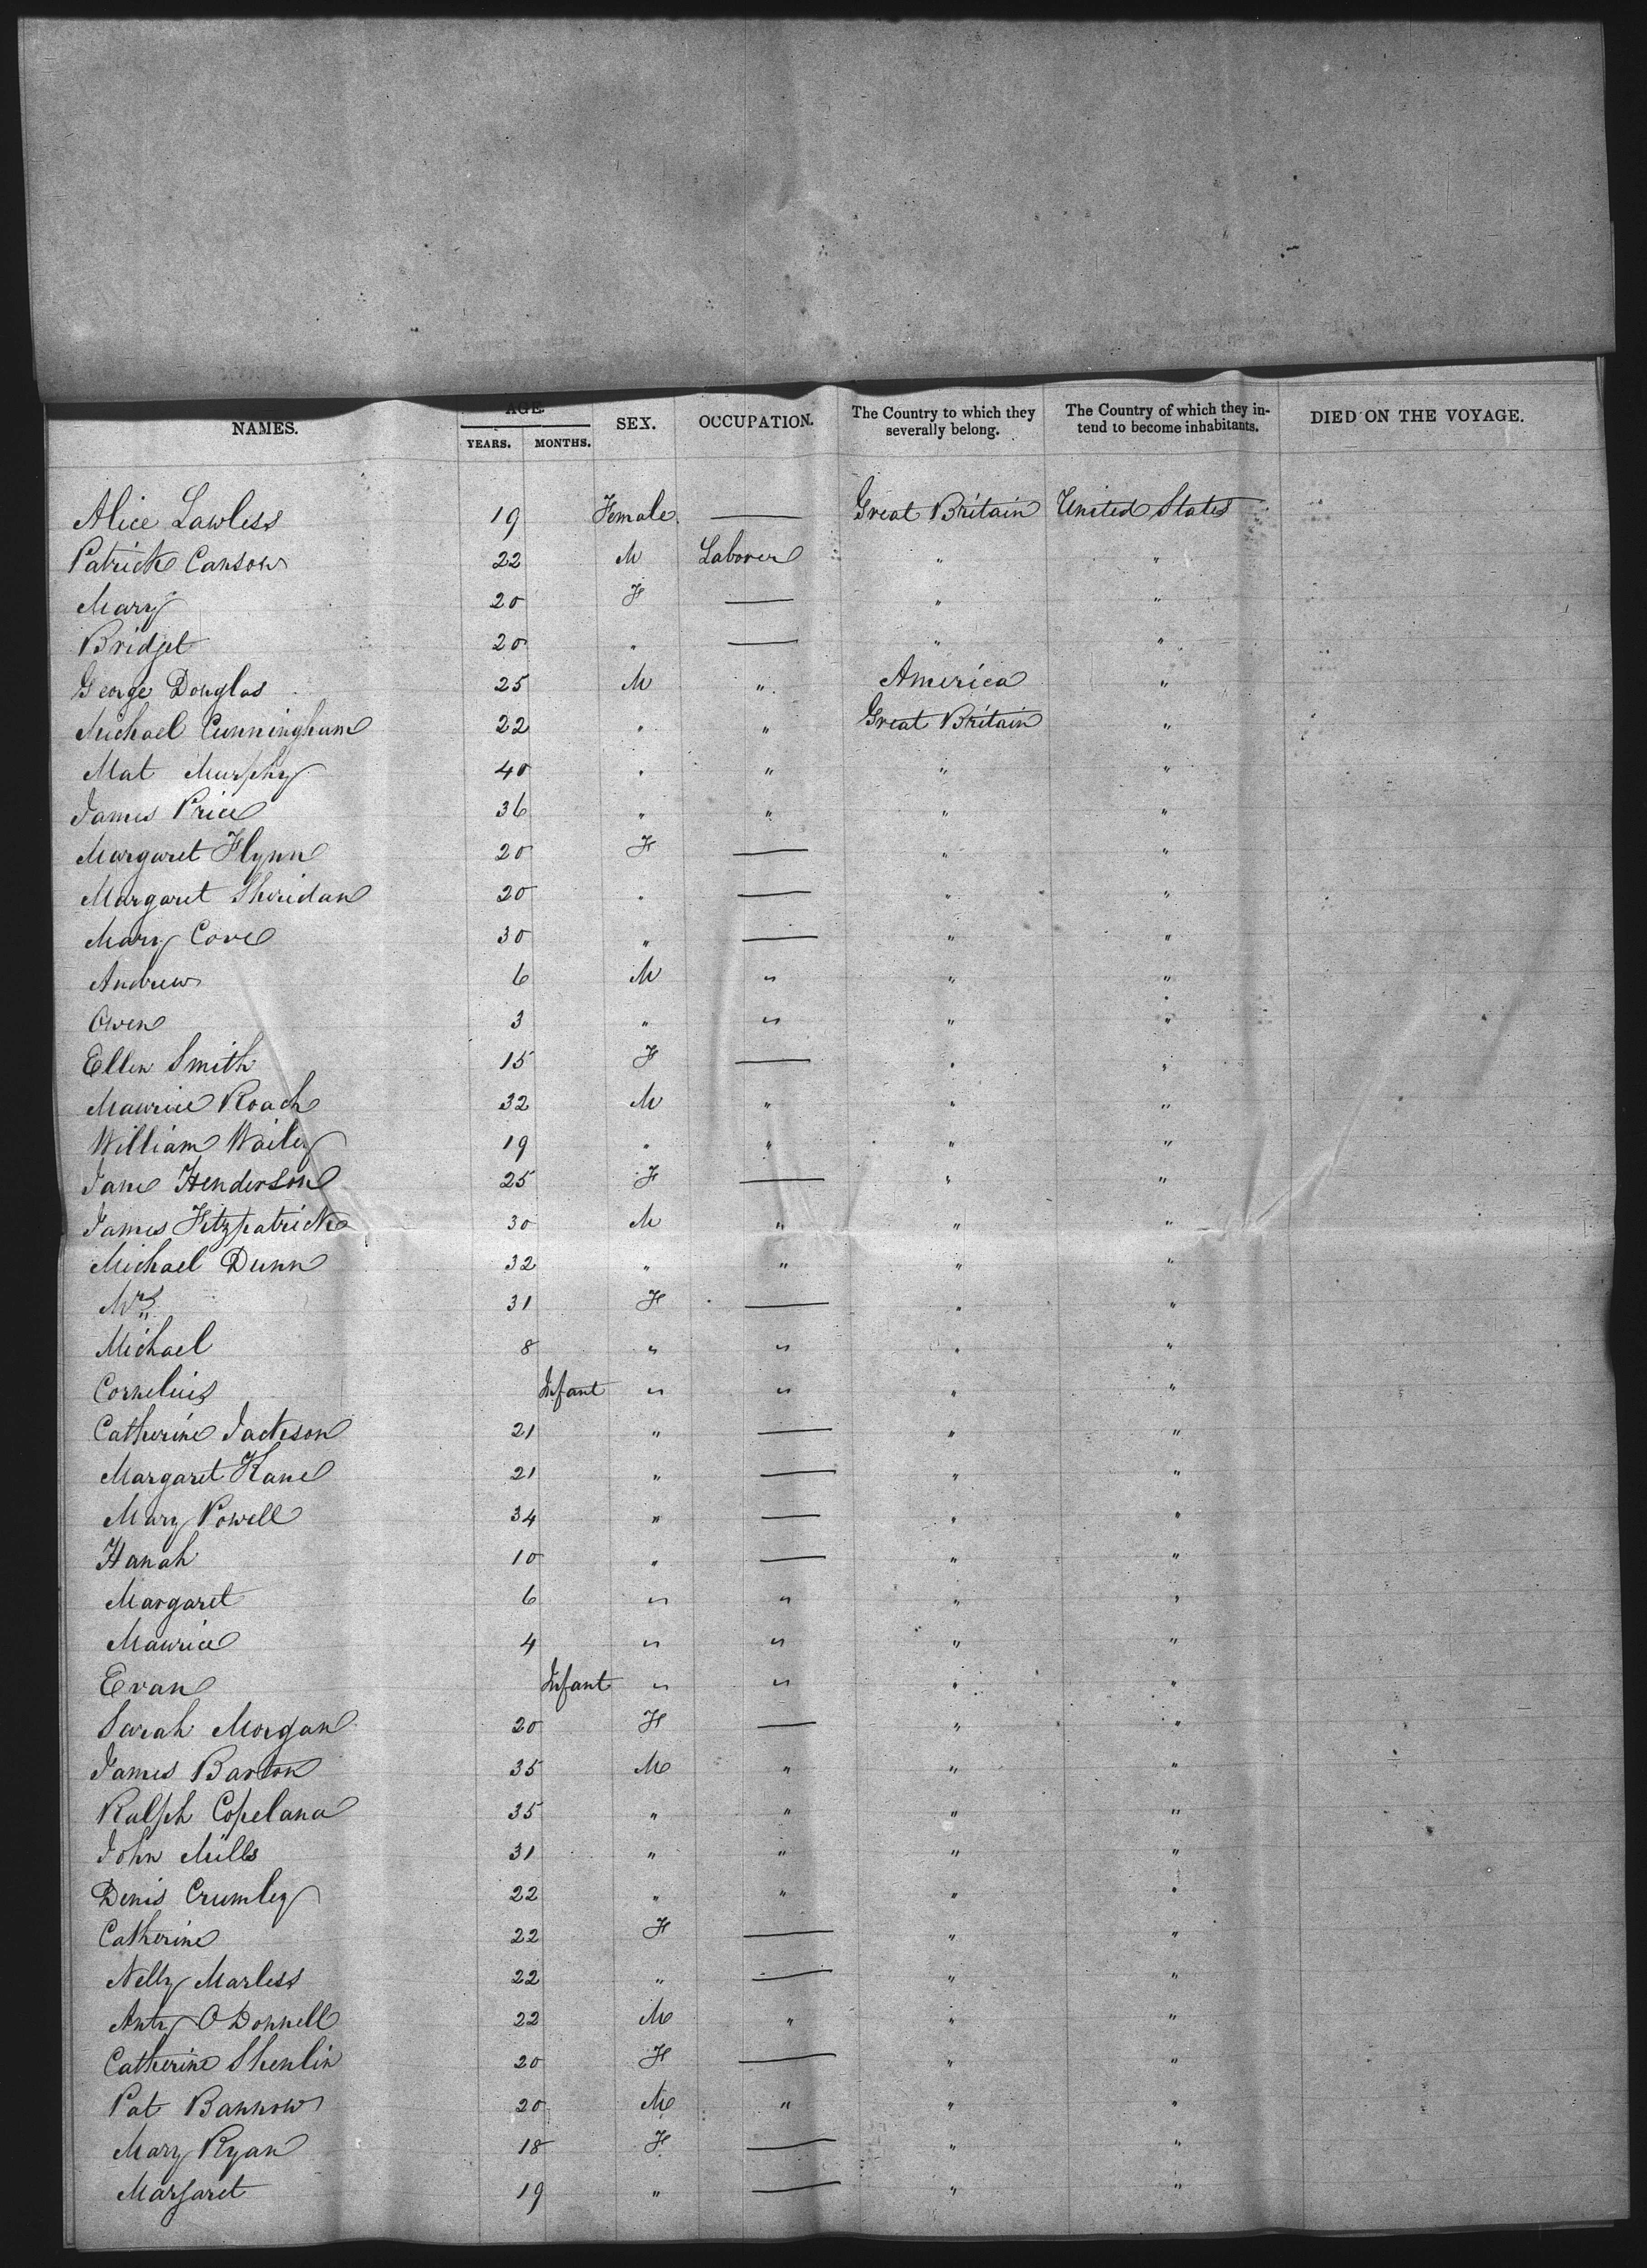 NAMES. AGE. YEARS. MONTHS. SEX. OCCUPATION. The Country to which they severally belong. The Country of which they intend to become inhabitants. DIED ON THE VOYAGE.
Alice Lawless 19 Female — Great Britain United States
Patrick Canson 22 M Laborer " "
Mary 20 F — " "
Bridget 20 " — " "
George Douglas 25 M " America "
Michael Cunningham 22 " " Great Britain "
Mat Murphy 40 " " " "
James Price 36 " " " "
Margaret Flynn 20 F — " "
Margaret Sheridan 20 " — " "
Mary Cove 30 " — " "
Andrew 6 M " " "
Owen 3 " " " "
Ellen Smith 15 F — " "
Maurice Roach 32 M " " "
William Wailey 19 " " " "
Jane Henderson 25 F — " "
James Fitzpatrick 30 M " " "
Michael Dunn 32 " " " "
Mrs " 31 F — " "
Michael 8 " " " "
Cornelius Infant " " " "
Catherine Jackson 21 " — " "
Margaret Kane 21 " — " "
Mary Powell 34 " — " "
Hanah 10 " — " "
Margaret 6 " " " "
Maurice 4 " " " "
Evan Infant " " " "
Sarah Morgan 20 F — " "
James Barton 35 M " " "
Ralph Copeland 35 " " " "
John Mills 31 " " " "
Denis Crumley 22 " " " "
Catherine 22 F — " "
Nelly Marless 22 " — " "
Anty O Donnell 22 M " " "
Catherine Shenlin 20 F — " "
Pat Bannow 20 M " " "
Mary Ryan 18 F — " "
Margaret 19 " — " "